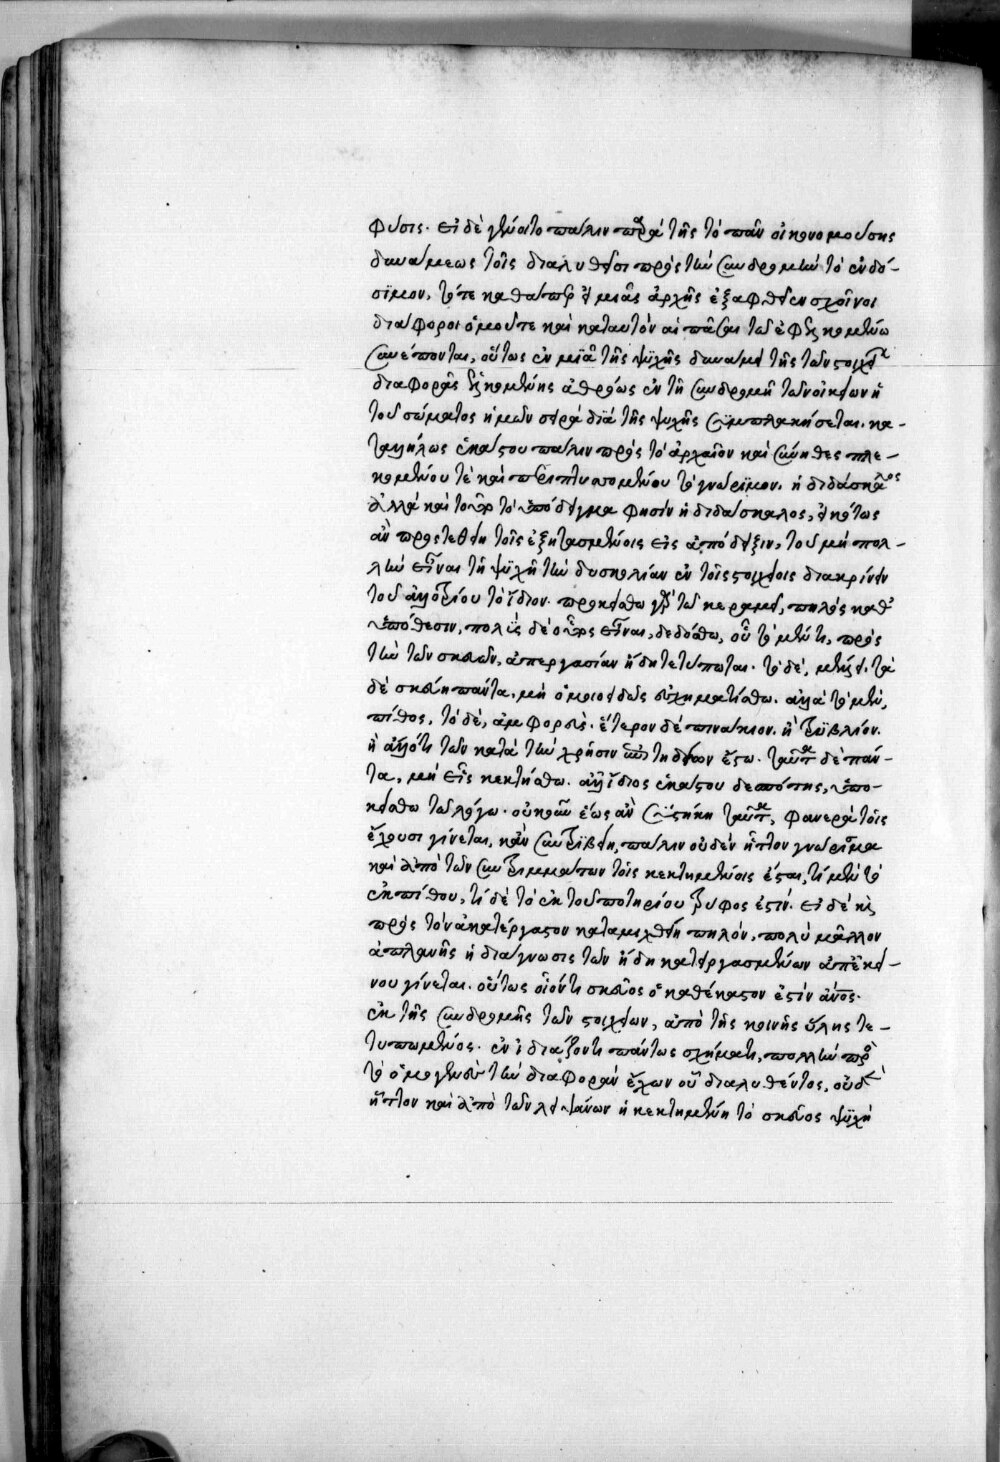 φύσις. εἰ δὲ γένοιτο πάλιν παρὰ τῆς τὸ πᾶν οἰκονομούσης
δυνάμεως τοῖς διαλυθεῖσι πρὸς τὴν συνδρομὴν τὸ ἐνδό-
σιμον, τότε καθάπερ εἰ μιᾶς ἀρχῆς ἐξαφθεῖεν σχοῖνοι
διάφοροι ὁμοῦ τε καὶ κατ αυτὸν αἱ πᾶσαι τῷ ἐφελκομένω
συνέπονται, οὕτως ἐν μιᾷ τῆς ψυχῆς δυνάμει τῆς τῶν στοιχεί
διαφορᾶς ἑλκομένης ἀθρόως ἐν τῇ συνδρομῇ τῶν οἰκείων ἡ
τοῦ σώματος ἡμῶν σειρὰ διὰ τῆς ψυχῆς συμπλακήσεται. κα-
ταλλήλως ἑκάστου πάλιν πρὸς τὸ ἀρχαῖον καὶ σύνηθες πλε-
κομένου τὲ καὶ περιπτυσσομένου τὸ γνώριμον. ἡ διδάσκαλος
ἀλλὰ καὶ τοῦτο τὸ ὑπόδειγμα φησὶν ἡ διδάσκαλος, εἰκότως
ἂν προστεθείη τοῖς ἐξητασμένοις εἰς ἀπόδειξιν, τοῦ μὴ πολ-
λὴν εἶναι τῇ ψυχῇ τὴν δυσκολίαν ἐν τοῖς στοιχείοις διακρίνειν
τοῦ ἀλλοτρίου τὸ ἴδιον. προκείσθω γὰρ τῷ κεραμεῖ, πηλὸς καθ'
ὑπόθεσιν, πολὺς δὲ οὗτος εἶναι, δεδόσθω, οὗ τὸ μέν τι, πρὸς
τὴν τῶν σκευῶν, ἀπεργασίαν ἤδη τετύπωται. τὸ δὲ, μέλλει. τὰ
δὲ σκεύη πάντα, μὴ ὁμοιοειδῶς σχηματίσθω. ἀλλὰ τὸ μὲν,
πίθος, τὸ δὲ, ἀμφορεὺς. ἕτερον δὲ πινάκιον. ἢ τρυβλίον.
ἢ ἄλλό τι τῶν κατὰ τὴν χρῆσιν ἐπιτηδείων ἔστω. ταῦτα δὲ πάν-
τα, μὴ εἷς κεκτήσθω. ἀλλ' ἴδιος ἑκάστου δεσπότης, ὑπο-
κείσθω τῷ λόγω. οὐκοῦν ἕως ἂν συνεστήκη ταῦτα, φανερὰ τοῖς
ἔχουσι γίνεται, κἂν συντριβείη, πάλιν οὐδὲν ἧττον γνώριμα
καὶ ἀπὸ τῶν συντριμμάτων τοῖς κεκτημένοις ἔσται, τί μὲν τὸ
ἐκ πίθου, τί δὲ τὸ ἐκ τοῦ ποτηρίου τρύφος ἐστίν. εἰ δὲ καὶ
πρὸς τὸν ἀκατέργαστον καταμιχθείη πηλόν, πολὺ μᾶλλον
ἀπλανὴς ἡ διάγνωσις τῶν ἤδη κατειργασμένων ἀπ' ἐκεί-
νου γίνεται. οὕτως οἷόν τι σκεῦος ὁ καθέκαστον ἐστὶν ἄνος.
ἐκ τῆς συνδρομῆς τῶν στοιχείων, ἀπὸ τῆς κοινῆς ὕλης τε-
τυπωμένος. ἐν ἰδιάζοντι πάντως σχήματι, πολλὴν πρὸς
τὸ ὁμογενὲς τὴν διαφορὰν ἔχων οὗ διαλυθέντος, οὐδὲν
ἧττον καὶ ἀπὸ τῶν λειψάνων ἡ κεκτημένη τὸ σκεῦος ψυχὴ